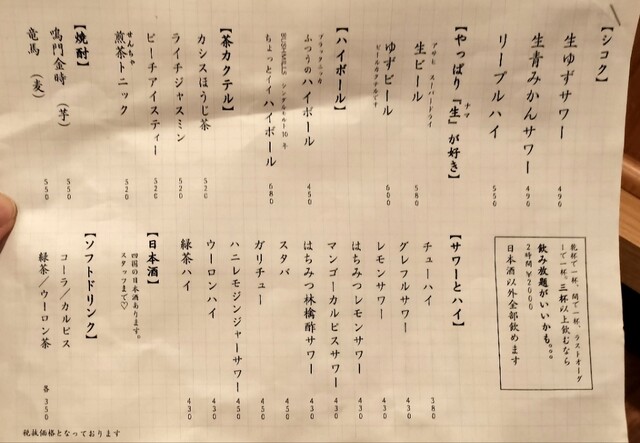 【シコク】
生ゆずサワー 490
生青みかんサワー 490
リーブルハイ 550
【やっぱり『生』が好き】
ナマ
アサヒ スーパードライ
生ビール 580
ゆずビール 600
ビールカクテルです
【ハイボール】
ブラックニッカ
ふつうのハイボール 450
ちょっとイイハイボール 680
【茶カクテル】
カシスほうじ茶 520
ライチジャスミン 520
ピーチアイスティー 520
せんちゃ
煎茶トニック 520
【焼酎】
鳴門金時 (芋) 550
竜馬 (麦) 550
乾杯で一杯、間で一杯、ラストオーダ
ーで一杯。三杯以上飲むなら
飲み放題がいいかも。。。
2時間¥2000
日本酒以外全部飲めます
【サワーとハイ】
チューハイ 380
グレフルサワー 430
レモンサワー 430
はちみつレモンサワー 430
マンゴーカルピスサワー 430
はちみつ林檎酢サワー 430
スタバ 450
ガリチュー 450
ハニレモジンジャーサワー 450
ウーロンハイ 430
緑茶ハイ 430
【日本酒】
四国の日本酒あります。
スタッフまで♡
【ソフトドリンク】
コーラ/カルピス
緑茶/ウーロン茶 各350
税抜価格となっております